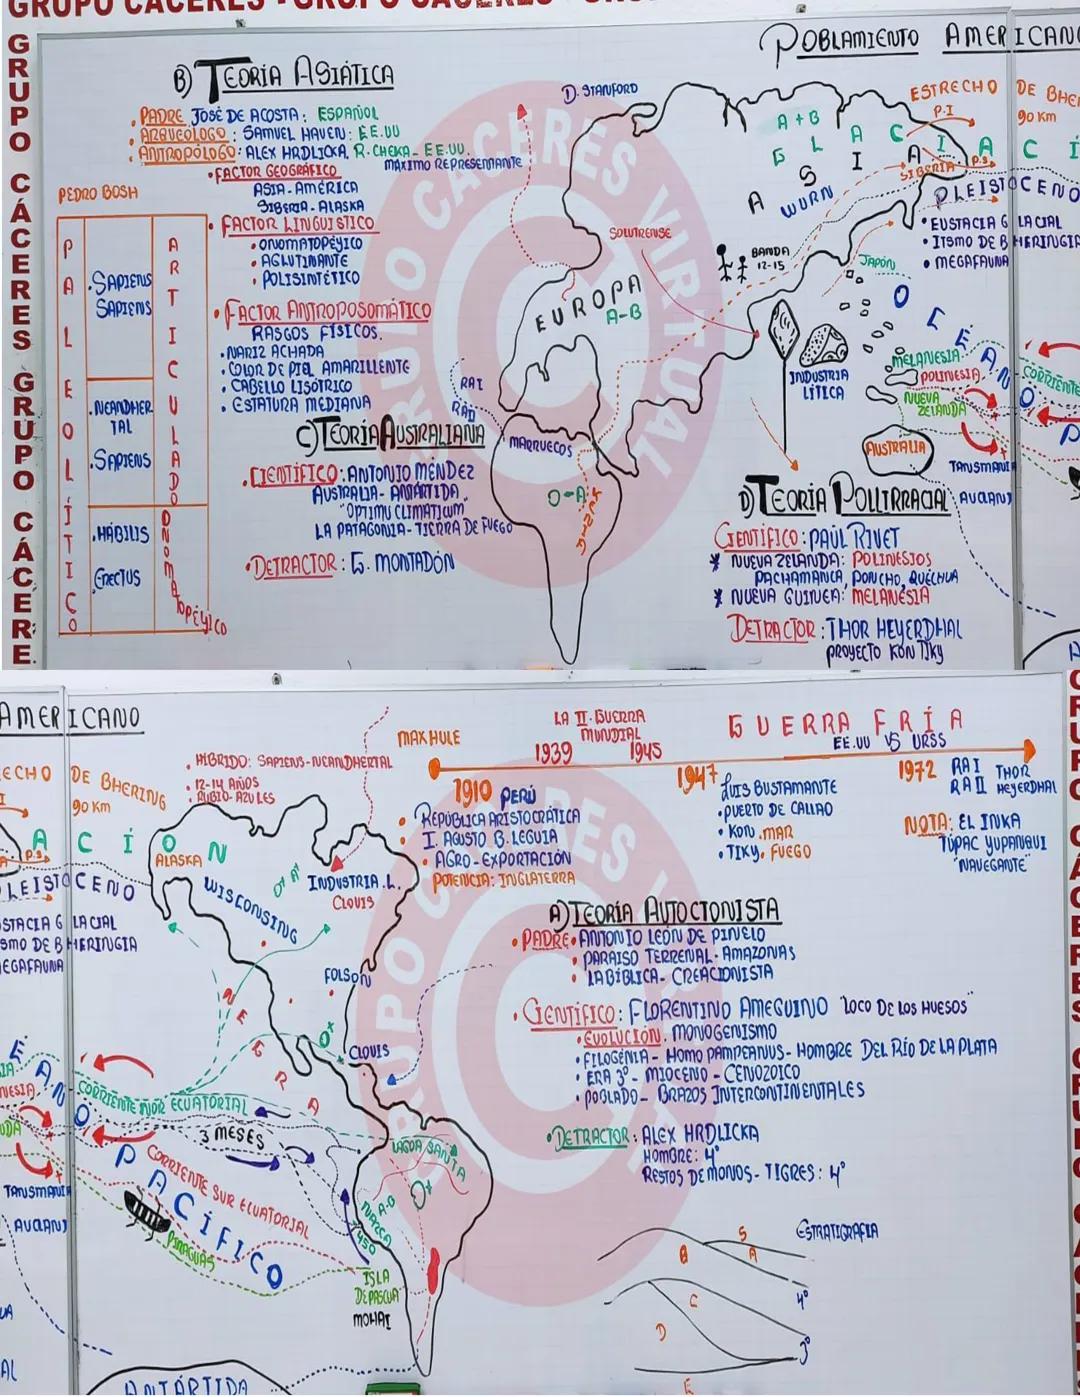 GRUPO CÁCERES
GRUPO CÁCERE
POBLAMIENTO AMERICANO
B) TEORÍA ASIÁTICA
PADRE JOSÉ DE ACOSTA: ESPAÑOL
ARQUEÓLOGO: SAMUEL HAVEN: EE.UU
ANTROPÓLOGO: ALEX HRDLICKA, R. CHEKA - EE.UU.
MÁXIMO REPRESENTANTE
FACTOR GEOGRÁFICO
ASIA - AMÉRICA
SIBERIA - ALASKA
FACTOR LINGUISTICO
ONOMATOPÉYICO
AGLUTINANTE
POLISINTÉTICO
FACTOR ANTROPOSOMATICO
RASGOS FÍSICOS.
NARIZ ACHADA
COLOR DE PIEL AMARILLENTE
CABELLO LISÓTRICO
ESTATURA MEDIANA
PEDRO BOSH
PALEOLÍTICO
SAPIENS
SAPIENS
NEANDHER
TAL
SAPIENS
HÁBILIS
ERECTUS
ARTICULADO
ONOMATOPÉYICO
C) TEORIA AUSTRALIANA
CIENTÍFICO: ANTONIO MENDEZ
AUSTRALIA - ANTÁRTIDA.
"OPTIMU CLIMATICUM
LA PATAGONIA - TIERRA DE FUEGO
DETRACTOR: G. MONTADÓN
D. STANFORD
SOLUTRENSE
EUROPA
A-B
RAI
RAII
MARRUECOS
O-A
A+B
GLACIACIÓN
ASIA
WURN
BANDA
12-15
INDUSTRIA
LÍTICA
ESTRECHO DE BHERING
P.I
90 Km
SIBERIA
P.S
PLEISTOCENO
EUSTACIA GLACIAL
ITSMO DE BHERINGIA
MEGAFAUNA
JAPÓN
OCÉANO
MELANESIA
POLINESIA
NUEVA
ZELANDA
AUSTRALIA
TANSMANIA
D) TEORÍA POLIRRACIAL
CIENTÍFICO: PAUL RIVET
* NUEVA ZELANDA: POLINESIOS
PACHAMANCA, PONCHO, QUÉCHUA
* NUEVA GUINEA: MELANESIA
DETRACTOR: THOR HEYERDHAL
PROYECTO KON TIKY
AMERICANO
ECHO DE BHERING
90 Km
HIBRIDO: SAPIENS-NEANDHERTAL
12-14 AÑOS
RUBIO-AZULES
ACIÓN
P.S
ALASKA
LEISTOCENO
STACIA GLACIAL
SMO DE BHERINGIA
EGAFAUNA
WISCONSING
O+ A+
INDUSTRIA .L.
CLOVIS
FOLSON
O+
CLOVIS
NEGRA
CORRIENTE NOR ECUATORIAL
3 MESES
CORRIENTE SUR ECUATORIAL
PACÍFICO
PIRAGUAS
TANSMANIA
LAGOA SANTA
O+
1450
ISLA
DE PASCUA
MOHAI
ANTÁRTIDA
MAX HULE
LA II. GUERRA
MUNDIAL
1939 1945
GUERRA FRÍA
EE.UU VS URSS
1910 PERÚ
REPÚBLICA ARISTOCRÁTICA
I. AGUSTO B. LEGUIA
AGRO-EXPORTACIÓN
POTENCIA: INGLATERRA
1947
LUIS BUSTAMANTE
PUERTO DE CALLAO
KON. MAR
TIKY. FUEGO
1972 RAI THOR
RA II HEYERDHAL
NOTA: EL INKA
TÚPAC YUPANQUI
"NAVEGANTE"
A) TEORÍA AUTOCTONISTA
PADRE ANTONIO LEÓN DE PINELO
PARAISO TERRENAL - AMAZONAS
LA BÍBLICA - CREACIONISTA
CIENTÍFICO: FLORENTINO AMEGUINO "LOCO DE LOS HUESOS"
EVOLUCIÓN. MONOGENISMO
FILOGÉNIA - HOMO PAMPEANUS - HOMBRE DEL RÍO DE LA PLATA
ERA 3° - MIOCENO - CENOZOICO
POBLADO - BRAZOS INTERCONTINENTALES
DETRACTOR: ALEX HRDLICKA
HOMBRE: 4°
RESTOS DE MONOS - TIGRES: 4°
ESTRATIGRAFIA
S
B A
4°
C
D
3°
E